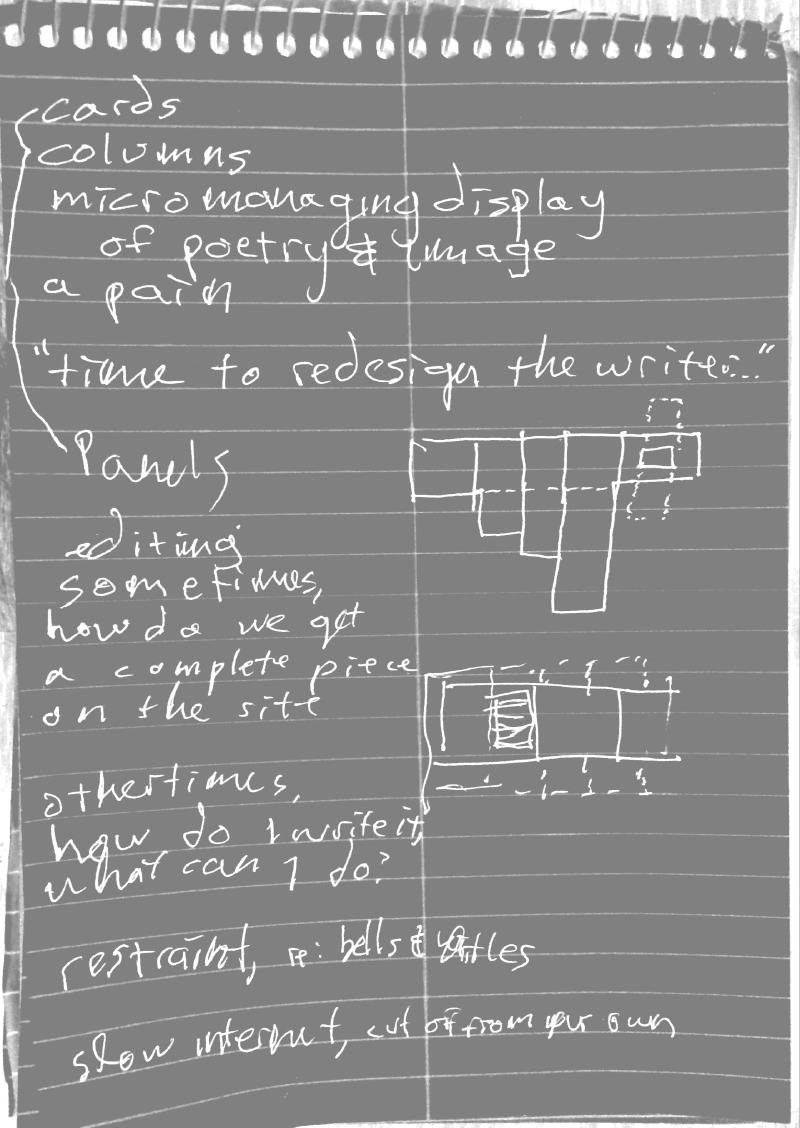 cards
columns
micromanaging display
of poetry & image
a pain
"time to redesign the writer..."
Panels
editing
sometimes,
how do we get
a complete piece
on the site
othertimes,
how do I write it,
what can I do?
restraint, re: bells &
slow internet, cut off from your own